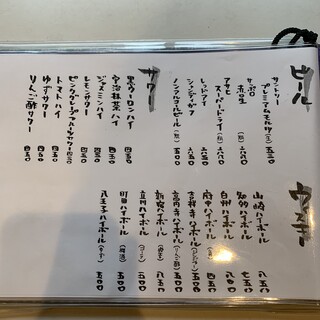 ビール
サントリー
プレミアムモルツ(生) 五五〇
サッポロ
赤星 (瓶) 六五〇
アサヒ
スーパードライ(瓶) 六五〇
レッドアイ 六五〇
シャンディガフ 六五〇
ノンアルコールビール(瓶) 五〇〇
サワー
黒ウーロンハイ 四五〇
宇治抹茶ハイ 四五〇
ジャスミンハイ 四五〇
レモンサワー 四五〇
トマトハイ 四五〇
ピンクグレープフルーツサワー 四五〇
ゆずサワー 四五〇
りんご酢サワー 四五〇
ウイスキー
山崎ハイボール 八五〇
知多ハイボール 八五〇
白州ハイボール
府中ハイボール
吉祥寺ハイボール
高円寺ハイボール(りんご酢) 五〇〇
新宿ハイボール
立川ハイボール(コーラ) 五〇〇
町田ハイボール 五〇〇
八王子ハイボール(ゆず) 五〇〇